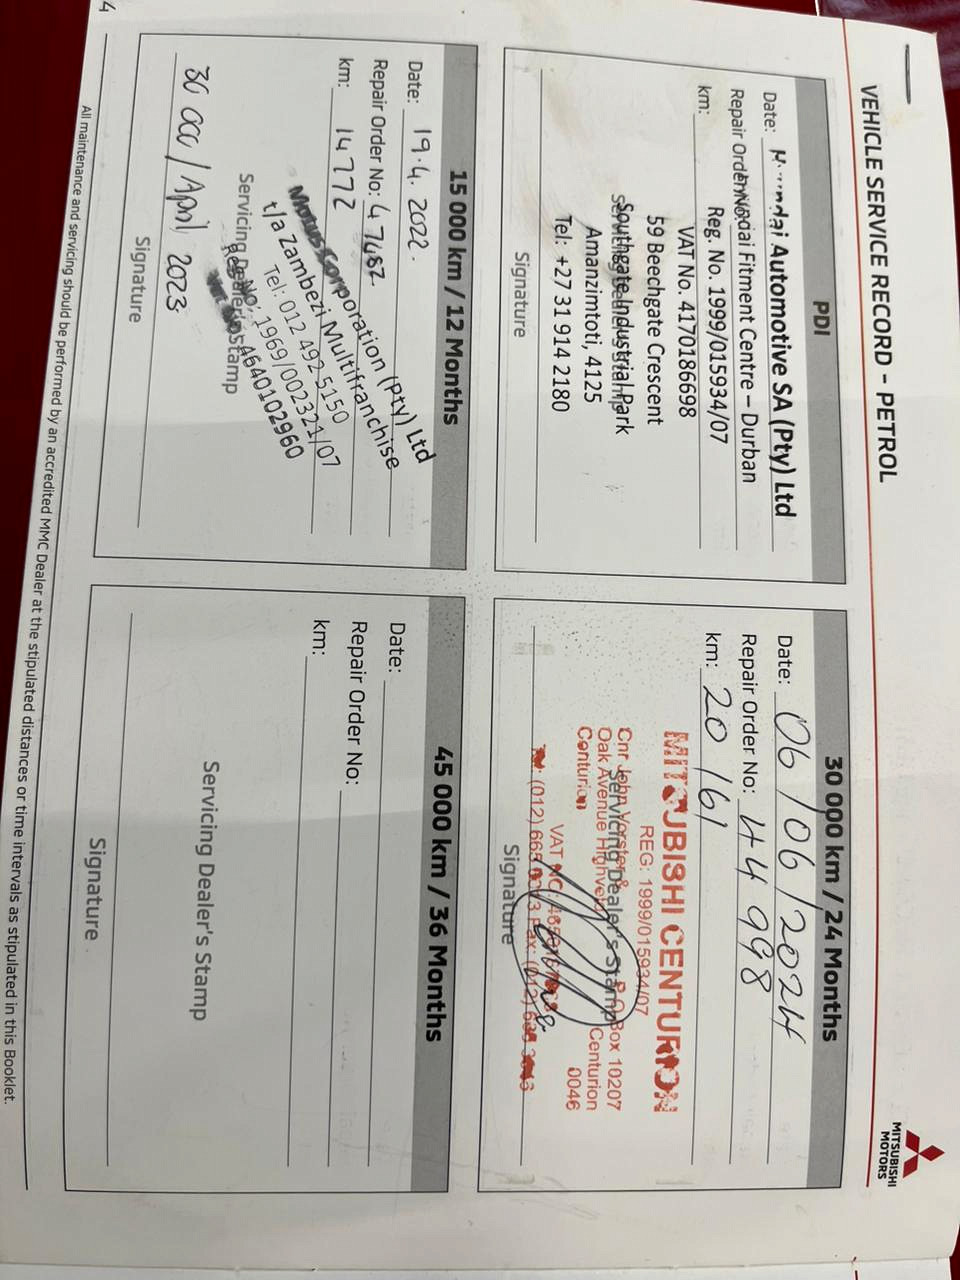 VEHICLE SERVICE RECORD – PETROL
MITSUBISHI
MOTORS
PDI
Date:
Automotive SA (Pty) Ltd
Repair Order No:
Fitment Centre – Durban
Reg. No. 1999/015934/07
km:
VAT No. 4170186698
59 Beechgate Crescent
Southgate Industrial Park
Amanzimtoti, 4125
Tel: +27 31 914 2180
Signature
30 000 km / 24 Months
Date: 06/06/2024
Repair Order No: 44998
km: 20 161
MITSUBISHI CENTURION
REG: 1999/015934/07
Cnr John Vorster & P.O. Box 10207
Oak Avenue Highveld Centurion
Centurion 0046
Servicing Dealer's Stamp
VAT NO:
Signature
15 000 km / 12 Months
Date: 19.4.2022.
Repair Order No: 47482
km: 14772
Motus Corporation (Pty) Ltd
t/a Zambezi Multifranchise
Tel: 012 492 5150
Reg No: 1969/002321/07
4640102960
Servicing Dealer's Stamp
30 000 / April 2023
Signature
45 000 km / 36 Months
Date:
Repair Order No:
km:
Servicing Dealer's Stamp
Signature
All maintenance and servicing should be performed by an accredited MMC Dealer at the stipulated distances or time intervals as stipulated in this Booklet.
4